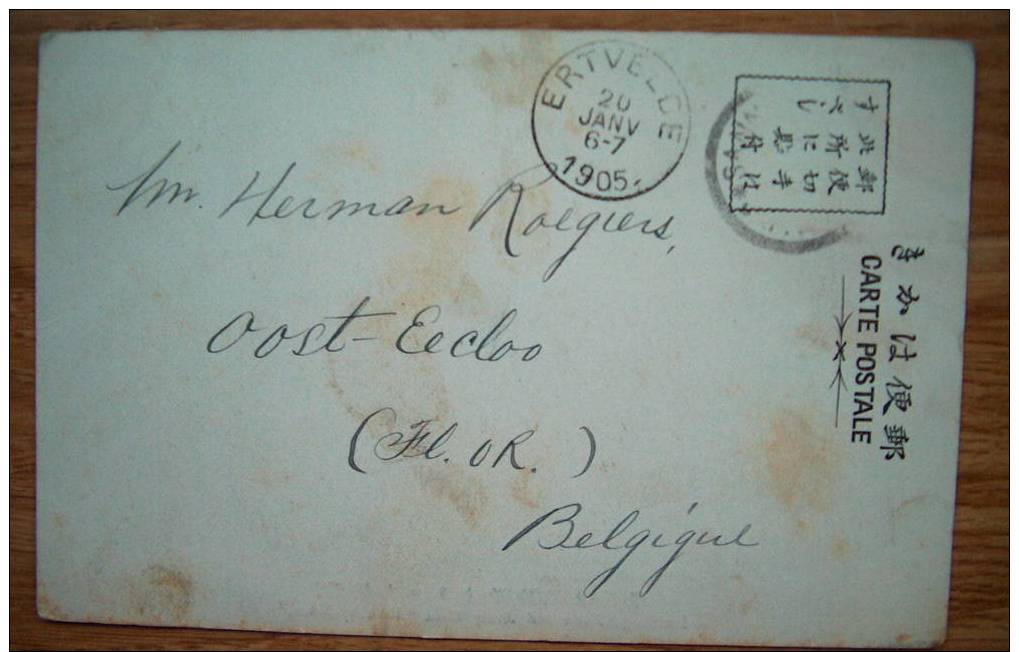 ERTVELDE
20
JANV
6-7
1905
郵便切手は
此所に貼付
すべし
きかは便郵
CARTE POSTALE
Mr. Herman Roegiers,
Oost-Eecloo
(Fl. OR.)
Belgique